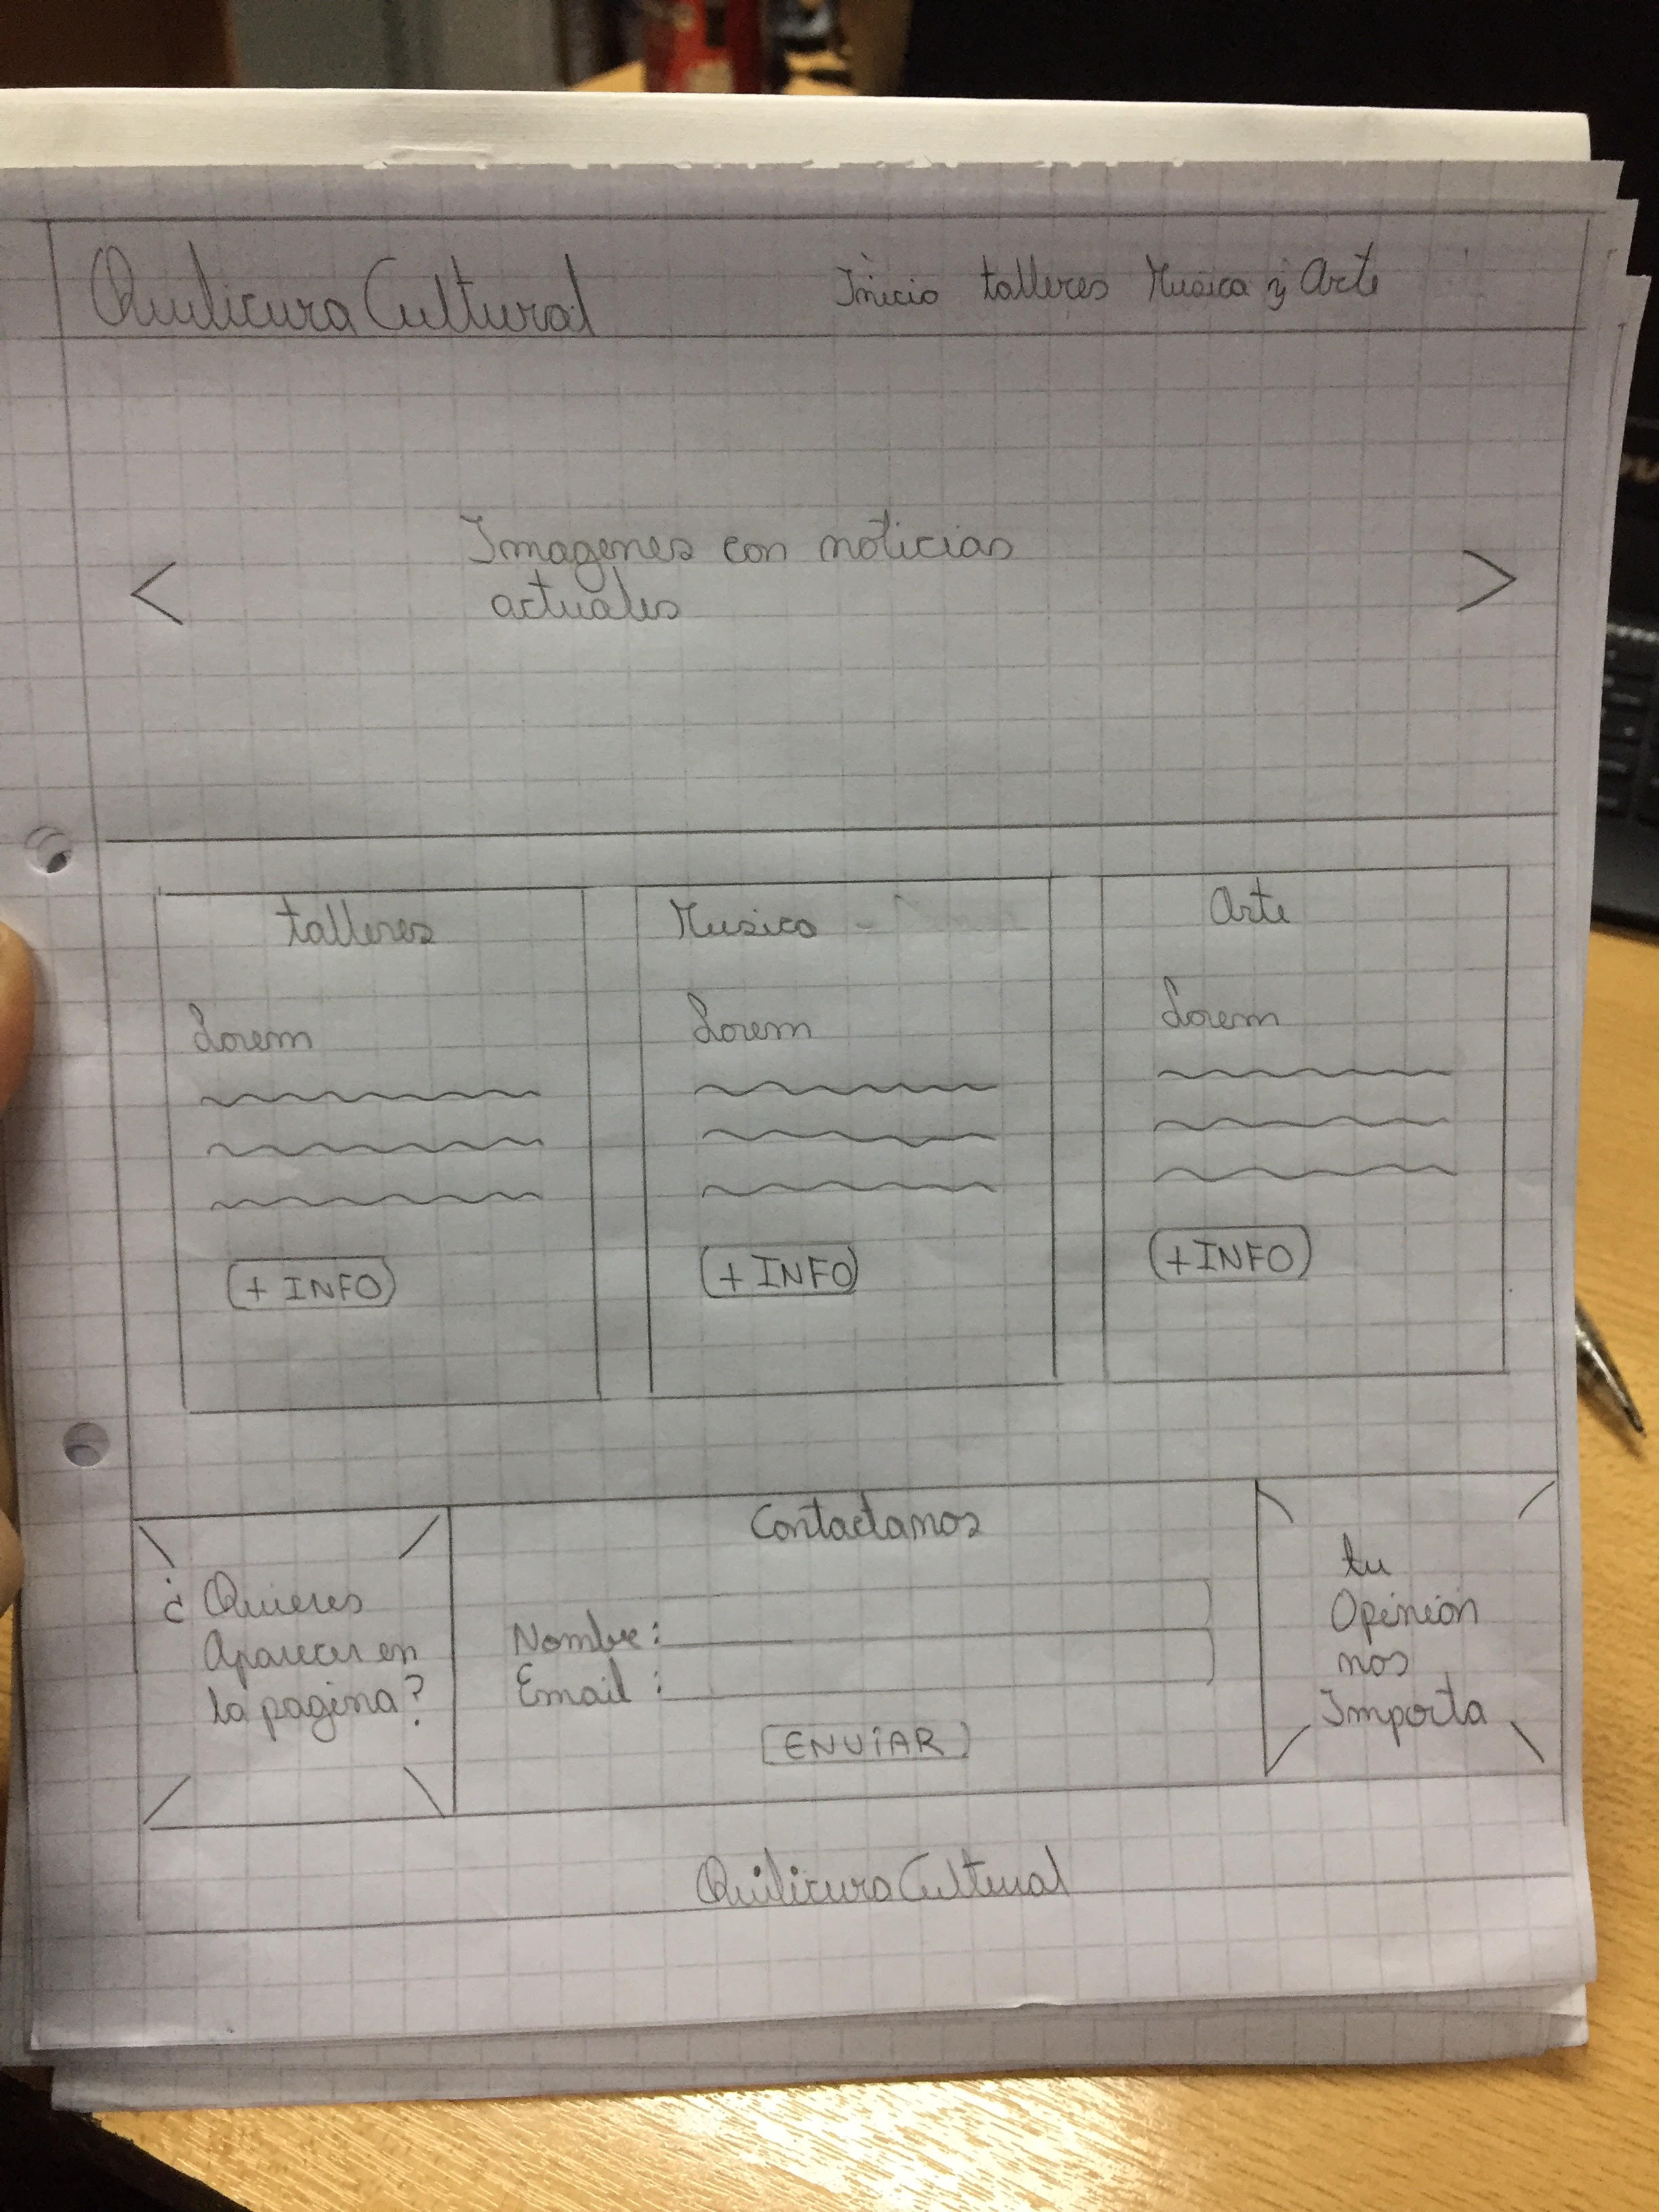 Quilicura Cultural
Inicio talleres Musica y Arte
<
Imagenes con noticias
actuales
>
talleres
Lorem
+ INFO
Musica
Lorem
+ INFO
Arte
Lorem
+ INFO
¿Quieres
Aparecer en
la pagina?
Contactanos
Nombre:
Email:
ENViAR
tu
Opinión
nos
Importa
Quilicura Cultural